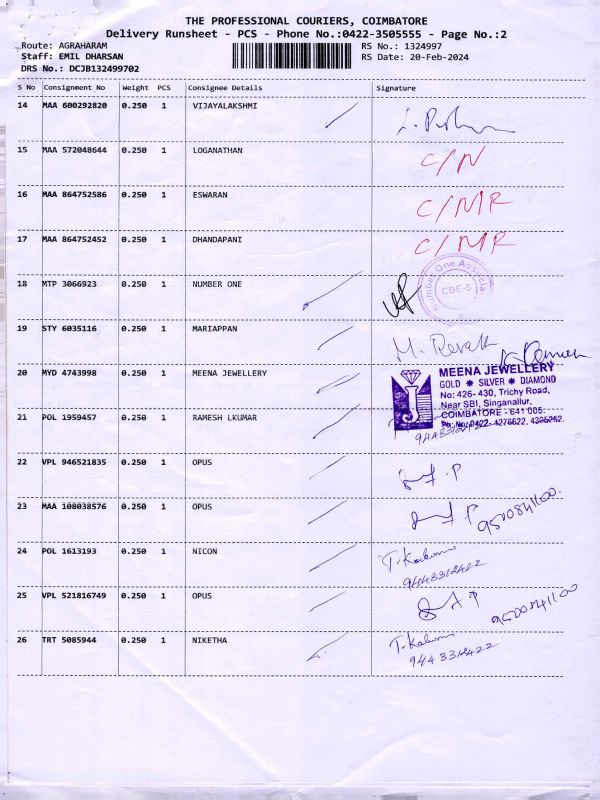 THE PROFESSIONAL COURIERS, COIMBATORE
Delivery Runsheet - PCS - Phone No.:0422-3505555 - Page No.:2
Route: AGRAHARAM RS No.: 1324997
Staff: EMIL DHARSAN RS Date: 20-Feb-2024
DRS No.: DCJB132499702
S No Consignment No Weight PCS Consignee Details Signature
14 MAA 600292820 0.250 1 VIJAYALAKSHMI
15 MAA 572048644 0.250 1 LOGANATHAN C/N
16 MAA 864752586 0.250 1 ESWARAN C/NR
17 MAA 864752452 0.250 1 DHANDAPANI C/NR
18 MTP 3066923 0.250 1 NUMBER ONE
Number One Associa
CBE-5
19 STY 6035116 0.250 1 MARIAPPAN M. Revak
20 MYD 4743998 0.250 1 MEENA JEWELLERY
MEENA JEWELLERY
GOLD SILVER DIAMOND
No: 426- 430, Trichy Road,
Near SBI, Singanallur,
COIMBATORE - 641 005.
Ph: No: 0422- 4276622, 4395262.
21 POL 1959457 0.250 1 RAMESH LKUMAR
22 VPL 946521835 0.250 1 OPUS
23 MAA 108038576 0.250 1 OPUS
24 POL 1613193 0.250 1 NICON
9443312422
25 VPL 521816749 0.250 1 OPUS
26 TRT 5085944 0.250 1 NIKETHA
9443312422